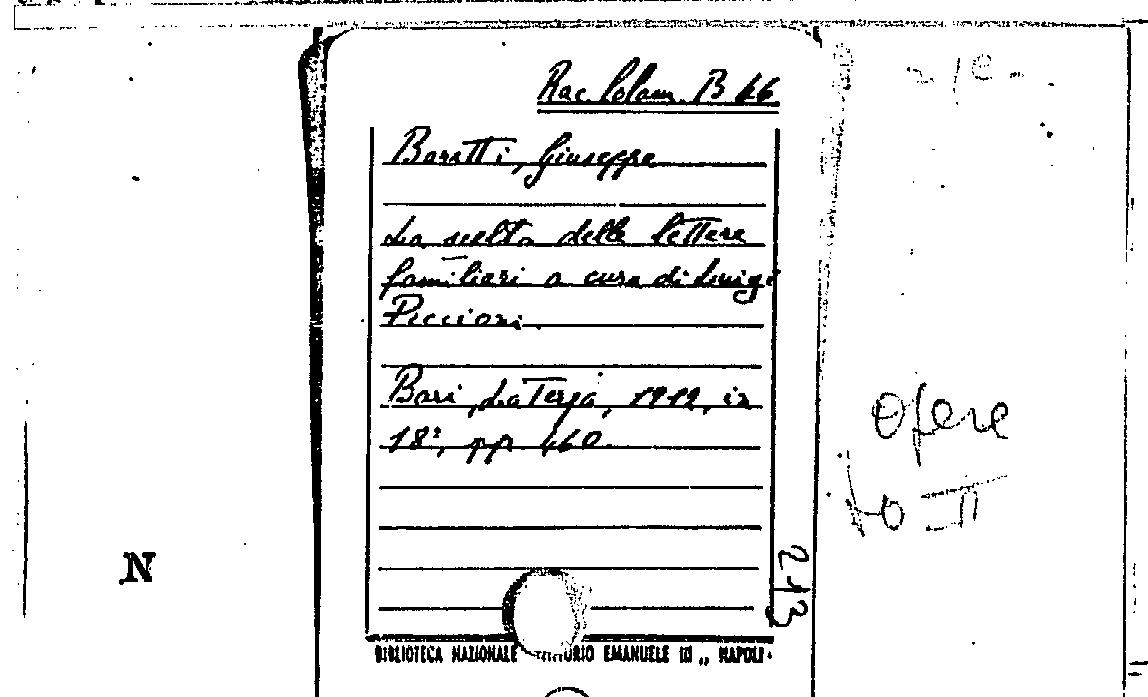 Rac. Colam. B 46
Baretti, Giuseppe
La scelta delle lettere
familiari a cura di Luigi
Piccioni.
Bari, LaTerza, 1912, in
18°, pp 460.
Opere
to II
N
213
BIBLIOTECA NAZIONALE EMANUELE III „ NAPOLI